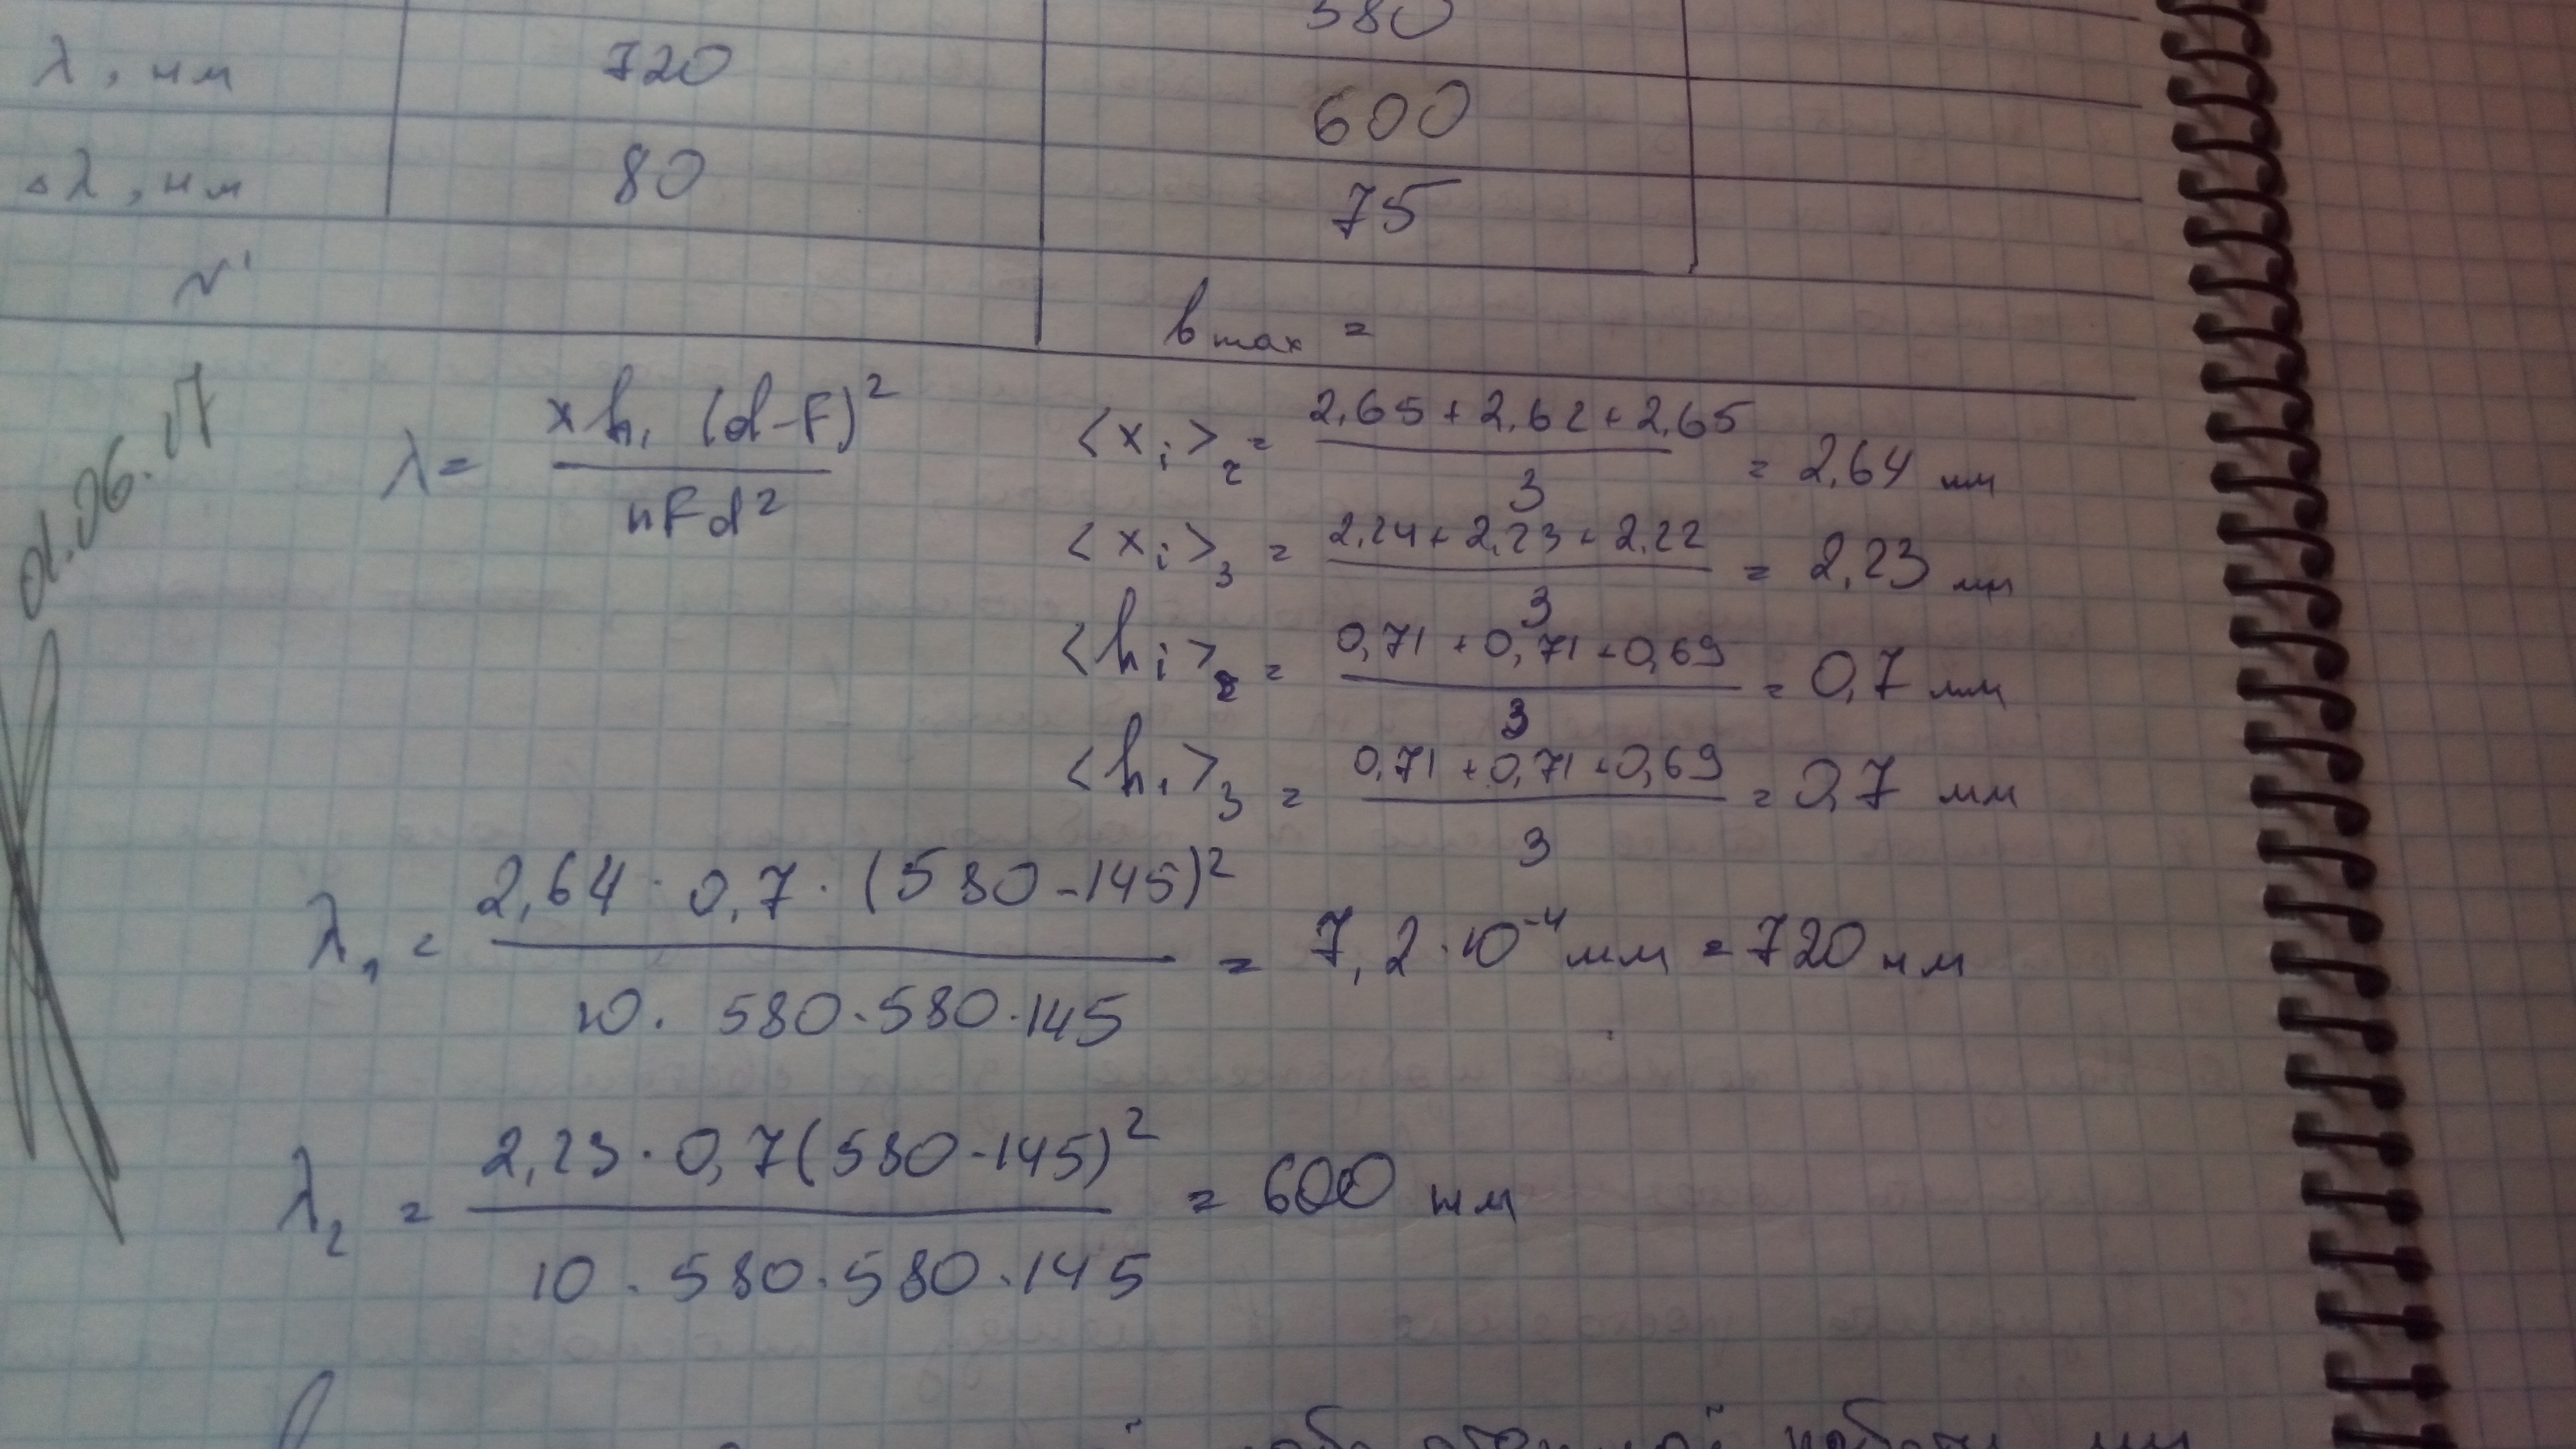 580
λ, нм 720 600
Δλ, нм 80 75
N'
b max =
01.06.17
λ = x h₁ (d-F)² / nFd²
<x i>₂ = 2,65 + 2,62 + 2,65 / 3 = 2,64 мм
<x i>₃ = 2,24 + 2,23 + 2,22 / 3 = 2,23 мм
<h i>₂ = 0,71 + 0,71 + 0,69 / 3 = 0,7 мм
<h₁>₃ = 0,71 + 0,71 + 0,69 / 3 = 0,7 мм
λ₁ = 2,64 · 0,7 · (580 - 145)² / 10 · 580 · 580 · 145 = 7,2 · 10⁻⁴ мм = 720 нм
λ₂ = 2,23 · 0,7 (580 - 145)² / 10 · 580 · 580 · 145 = 600 нм